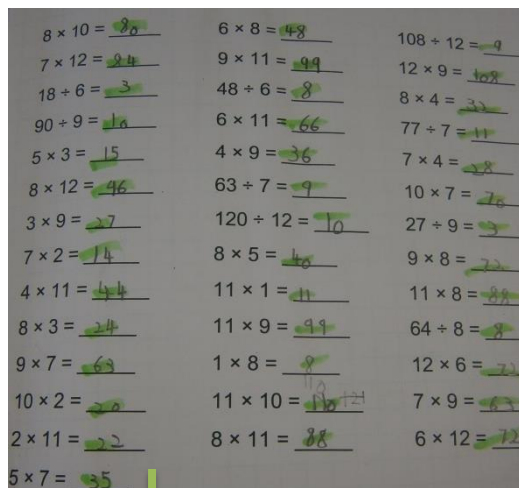 8 × 10 = 80
7 × 12 = 84
18 ÷ 6 = 3
90 ÷ 9 = 10
5 × 3 = 15
8 × 12 = 96
3 × 9 = 27
7 × 2 = 14
4 × 11 = 44
8 × 3 = 24
9 × 7 = 63
10 × 2 = 20
2 × 11 = 22
5 × 7 = 35
6 × 8 = 48
9 × 11 = 99
48 ÷ 6 = 8
6 × 11 = 66
4 × 9 = 36
63 ÷ 7 = 9
120 ÷ 12 = 10
8 × 5 = 40
11 × 1 = 11
11 × 9 = 99
1 × 8 = 8
11 × 10 = 110
8 × 11 = 88
108 ÷ 12 = 9
12 × 9 = 108
8 × 4 = 32
77 ÷ 7 = 11
7 × 4 = 28
10 × 7 = 70
27 ÷ 9 = 3
9 × 8 = 72
11 × 8 = 88
64 ÷ 8 = 8
12 × 6 = 72
7 × 9 = 63
6 × 12 = 72